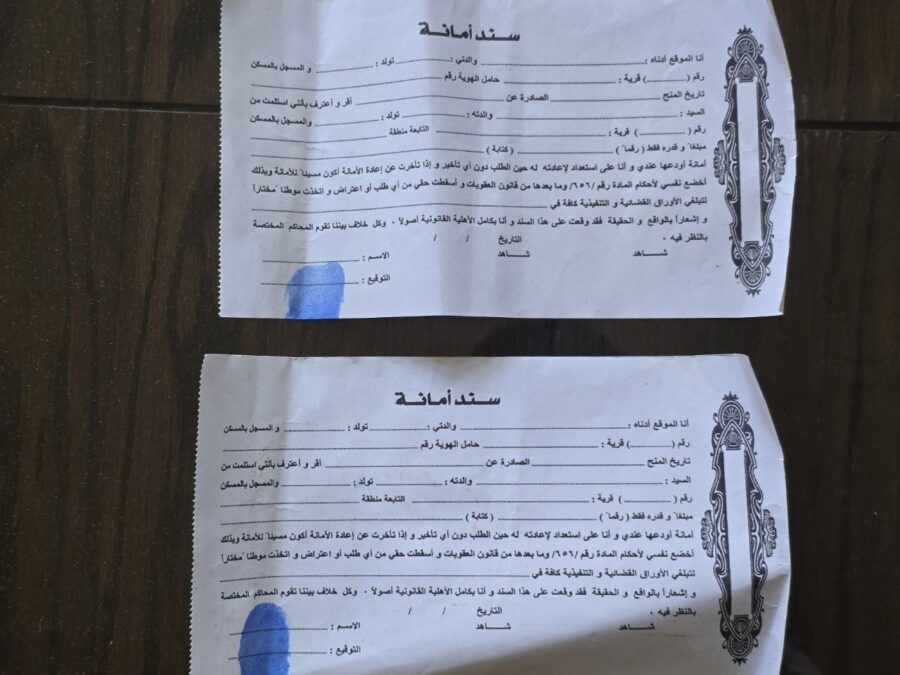 سند أمانة
أنا الموقع أدناه : والدتي : تولد : و المسجل بالمسكن
رقم ( ) قرية : حامل الهوية رقم
تاريخ المنح الصادرة عن أقر و أعترف بأنني استلمت من
السيد : والدته : تولد : والمسجل بالمسكن
رقم ( ) قرية : التابعة منطقة
مبلغاً و قدره فقط ( رقماً ) ( كتابة )
أمانة أودعها عندي و أنا على استعداد لإعادته له حين الطلب دون أي تأخير و إذا تأخرت عن إعادة الأمانة أكون مسيئاً للأمانة وبذلك
أخضع نفسي لأحكام المادة رقم /٦٥٦/ وما بعدها من قانون العقوبات و أسقطت حقي من أي طلب أو اعتراض و اتخذت موطناً مختاراً
لتبلغي الأوراق القضائية و التنفيذية كافة في
و إشعاراً بالواقع و الحقيقة فقد وقعت على هذا السند و أنا بكامل الأهلية القانونية أصولاً . وكل خلاف بيننا تقوم المحاكم المختصة
بالنظر فيه . التاريخ / /
شـــاهد شـــاهد الاسم :
التوقيع :
سند أمانة
أنا الموقع أدناه : والدتي : تولد : و المسجل بالمسكن
رقم ( ) قرية : حامل الهوية رقم
تاريخ المنح الصادرة عن أقر و أعترف بأنني استلمت من
السيد : والدته : تولد : والمسجل بالمسكن
رقم ( ) قرية : التابعة منطقة
مبلغاً و قدره فقط ( رقماً ) ( كتابة )
أمانة أودعها عندي و أنا على استعداد لإعادته له حين الطلب دون أي تأخير و إذا تأخرت عن إعادة الأمانة أكون مسيئاً للأمانة وبذلك
أخضع نفسي لأحكام المادة رقم /٦٥٦/ وما بعدها من قانون العقوبات و أسقطت حقي من أي طلب أو اعتراض و اتخذت موطناً مختاراً
لتبلغي الأوراق القضائية و التنفيذية كافة في
و إشعاراً بالواقع و الحقيقة فقد وقعت على هذا السند و أنا بكامل الأهلية القانونية أصولاً . وكل خلاف بيننا تقوم المحاكم المختصة
بالنظر فيه . التاريخ / /
شـــاهد شـــاهد الاسم :
التوقيع :